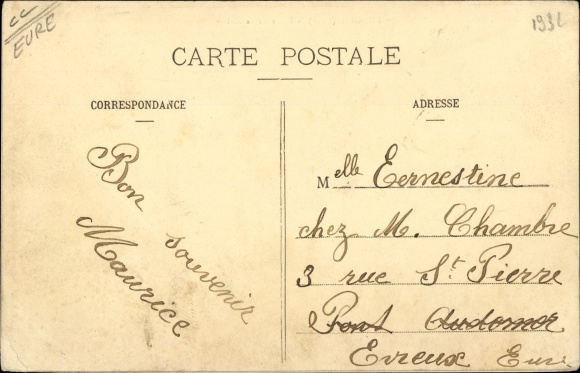 CC
EURE
1932
CARTE POSTALE
CORRESPONDANCE
Bon souvenir
Maurice
ADRESSE
Melle Eernestine
chez M. Chambre
3 rue St. Pierre
Pont Audomer
Evreux Eure